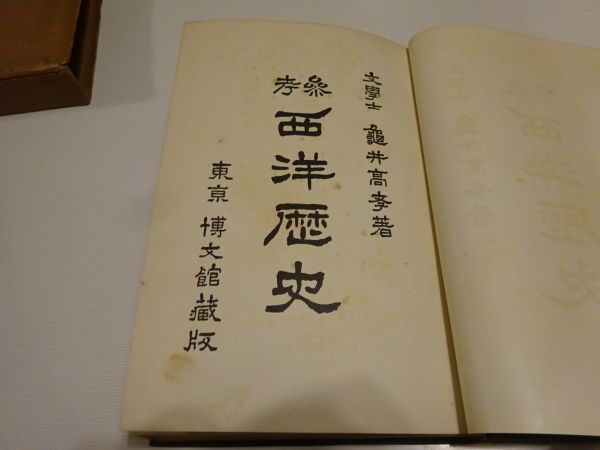 文學士 龜井高孝著
參考
西洋歴史
東京 博文館藏版